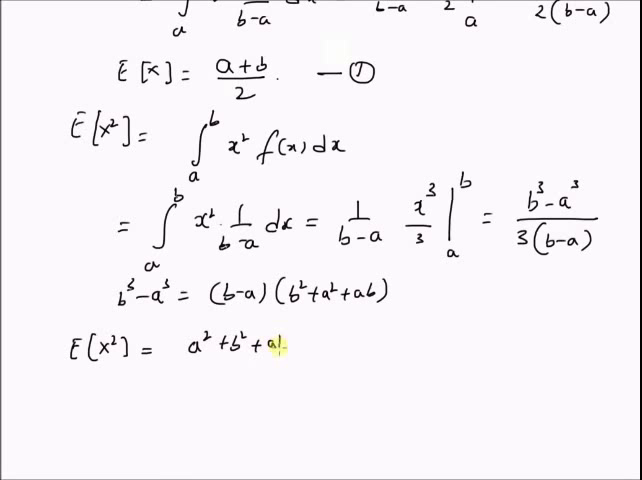 ∫ₐ b-a b-a 2 a 2(b-a)
E[x] = (a+b)/2 . — ①
E[x²] = ∫ₐᵇ x² f(x) dx
= ∫ₐᵇ x² · 1/(b-a) dx = 1/(b-a) x³/3 |ₐᵇ = (b³-a³)/(3(b-a))
b³-a³ = (b-a)(b²+a²+ab)
E[x²] = a²+b²+a